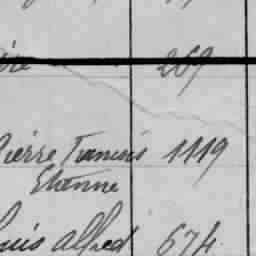 269
Pierre Francois 1119
Etienne
Louis Alfred 674